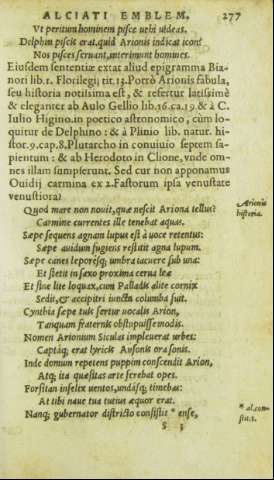 ALCIATI EMBLEM. 277
Vt peritum hominem pisce vehi videas.
Delphin piscis erat. quid Arionis indicat icon?
Nos pisces seruant, interimunt homines.
Eiusdem sententiæ extat aliud epigramma Bia-
nori lib. 1. Florilegij tit. 13. Porrò Arionis fabula,
seu historia notissima est, & refertur latissimè
& eleganter ab Aulo Gellio lib. 16. ca. 19. & à C.
Iulio Higino in poetico astronomico, cùm lo-
quitur de Delphino: & à Plinio lib. natur. hi-
stor. 9. cap. 8. Plutarcho in conuiuio septem sa-
pientum: & ab Herodoto in Clione, vnde om-
nes illam sumpserunt. Sed cur non apponamus
Ouidij carmina ex 2. Fastorum ipsa venustate
venustiora?
Quod mare non nouit, quæ nescit Ariona tellus?
Arionis
historia.
Carmine currentes ille tenebat aquas.
Sæpe sequens agnam lupus est à voce retentus:
Sæpe auidum fugiens restitit agna lupum.
Sæpe canes leporesq; vmbra iacuere sub vna:
Et stetit in saxo proxima cerua leæ
Et sine lite loquax, cum Palladis alite cornix
Sedit, & accipitri iuncta columba fuit.
Cynthia sæpe tuis fertur vocalis Arion,
Tanquam fraternis obstupuisse modis.
Nomen Arionium Siculas impleuerat vrbes:
Captáq; erat lyricis Ausonis ora sonis.
Inde domum repetens puppim conscendit Arion,
Atq; ita quæsitas arte ferebat opes.
Forsitan infelix ventos, undásq; timebas:
At tibi naue tua tutius æquor erat.
Namq; gubernator districto consistit * ense,
* al. con-
S 3